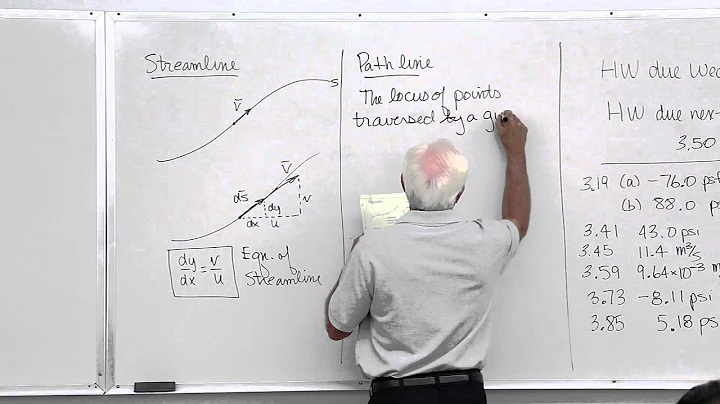 Streamline
V̄
S
V̄
d̄s
dy
dx
u
v
dy/dx = v/u
Eqn. of
Streamline
Path line
The locus of points
traversed by a
HW due Wed
HW due
3,50
3.19 (a) -76.0 psf
(b) 88.0
3.41 43.0 psi
3.45 11.4 m³/s
3.59 9.64×10⁻³
3.73 -8.11 psi
3.85 5.18